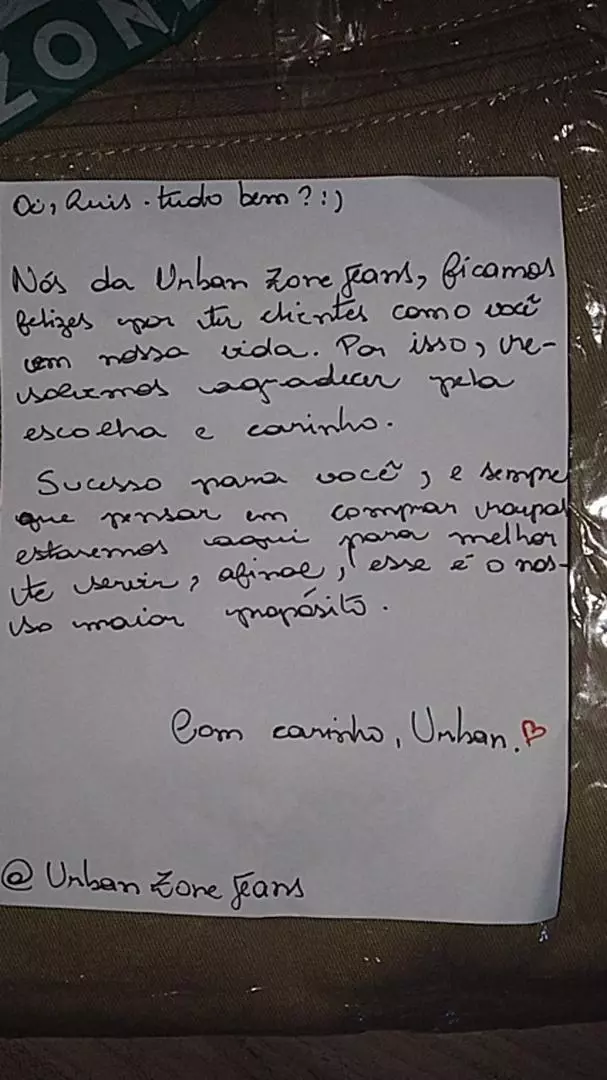 ZON
Oi, Luis. tudo bem? :)
Nós da Urban Zone Jeans, ficamos
felizes por ter clientes como você
em nossa vida. Por isso, re-
solvemos agradecer pela
escolha e carinho.
Sucesso para você, e sempre
que pensar em comprar roupas
estaremos aqui para melhor
te servir, afinal, esse é o nos-
so maior propósito.
Com carinho, Urban.
@ Urban Zone Jeans